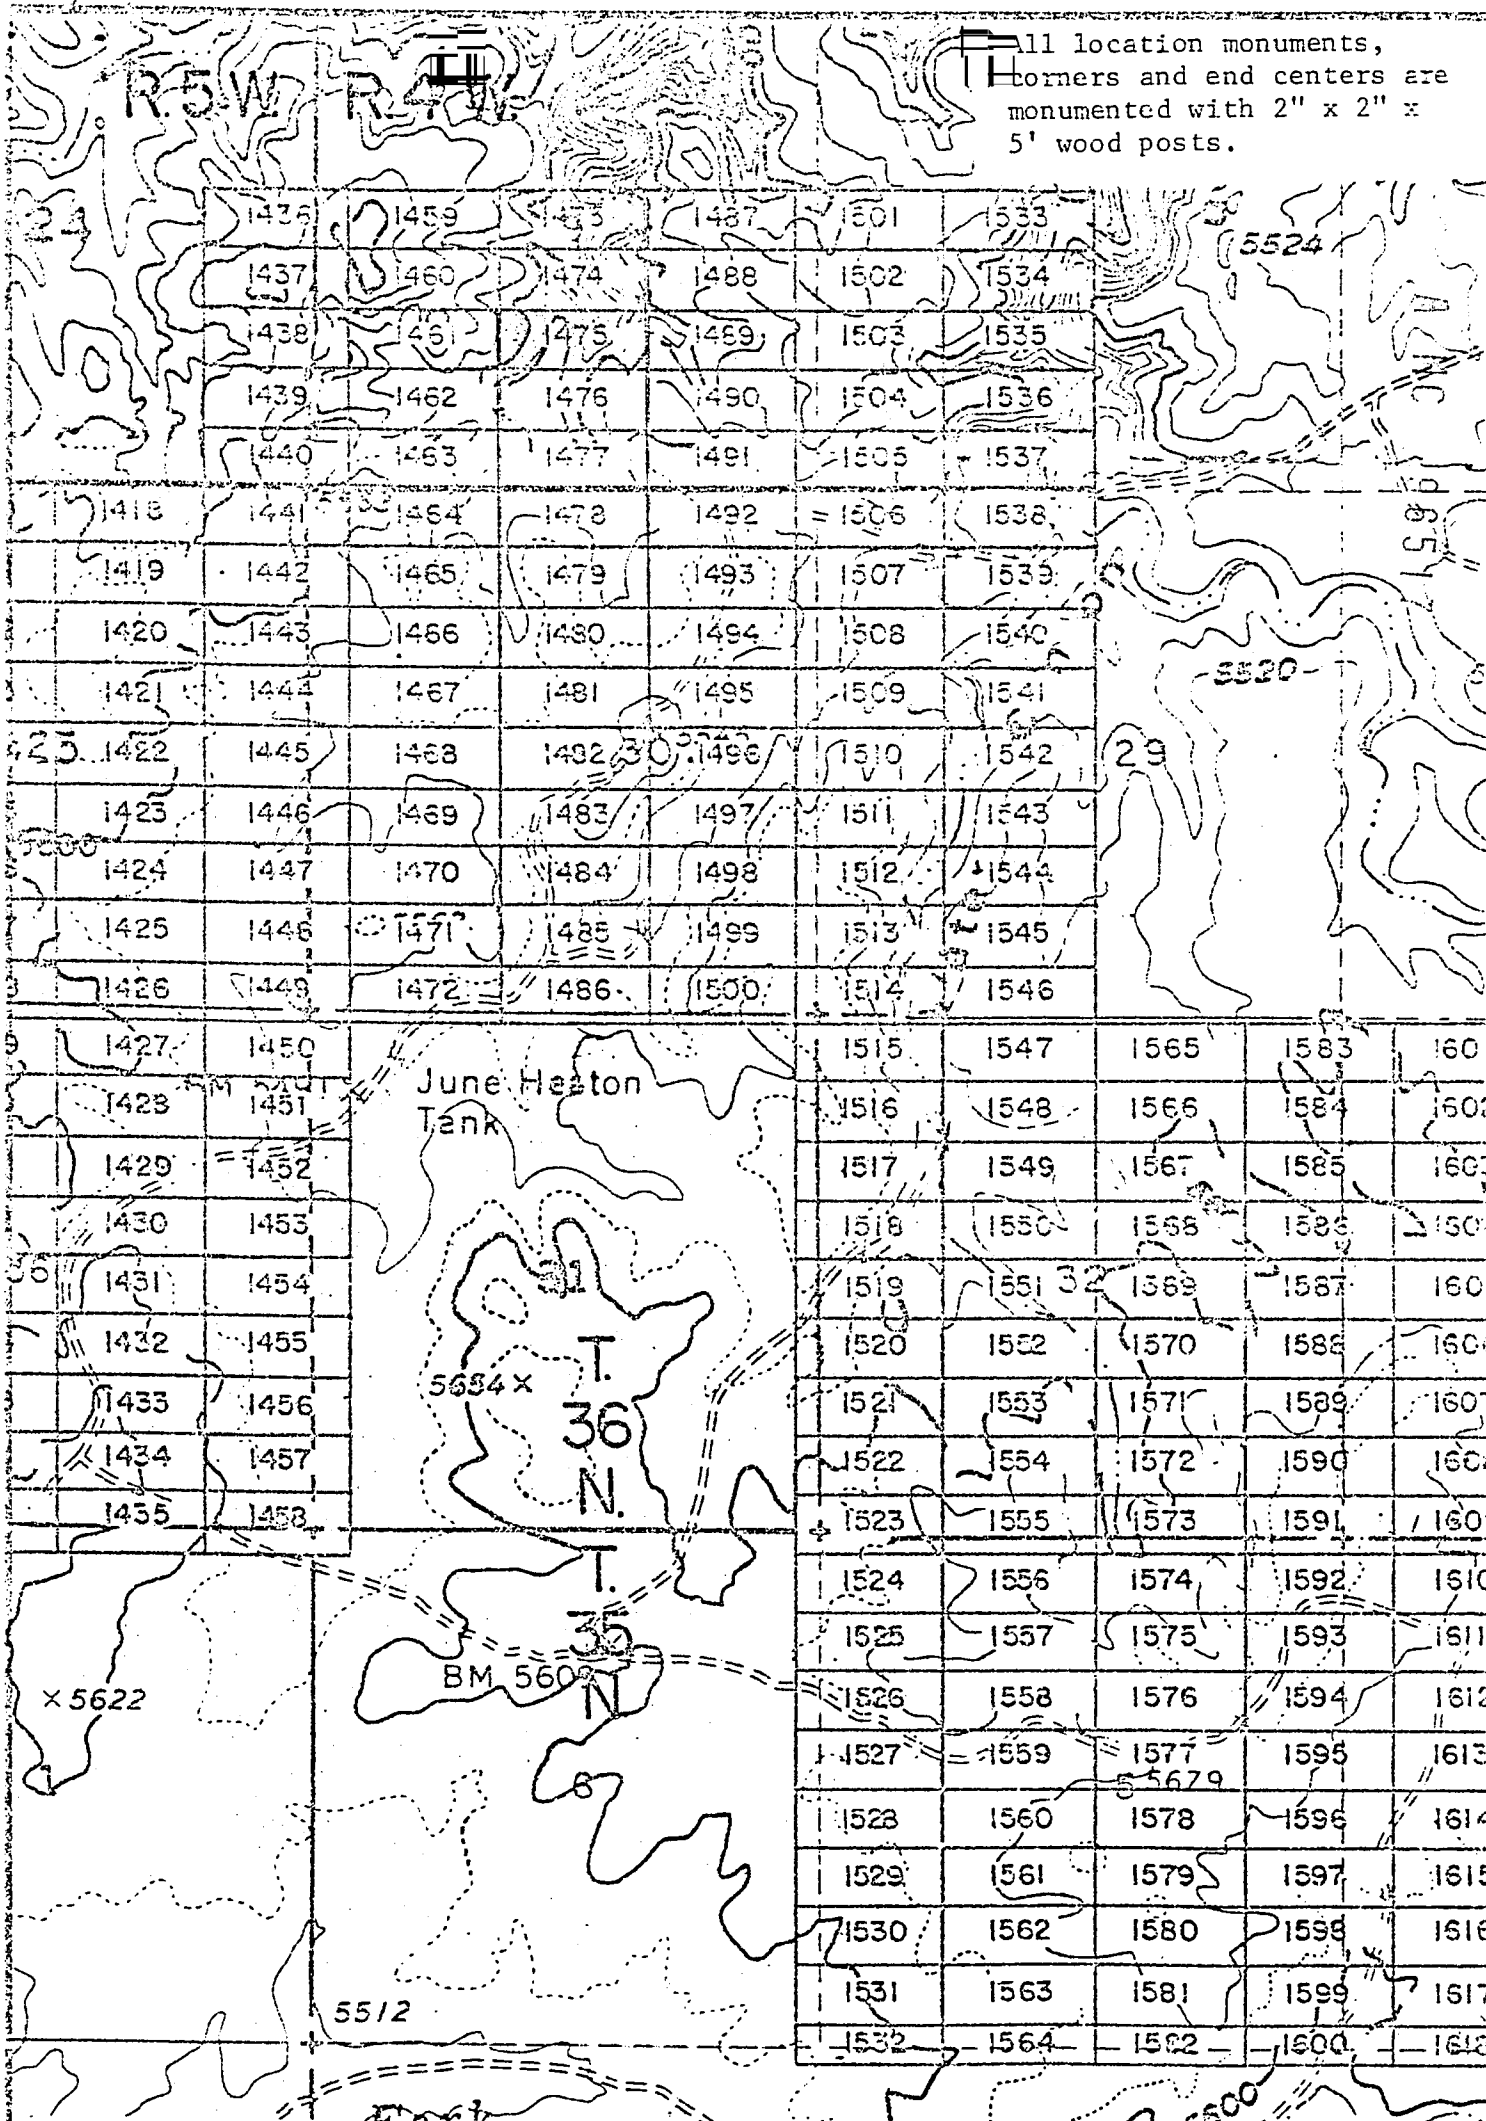 All location monuments,
corners and end centers are
monumented with 2" x 2" x
5' wood posts.
R.5W. R.4W.
24 1436 1459 1473 1487 1501 1533
5524
1437 1460 1474 1488 1502 1534
1438 1461 1475 1489 1503 1535
1439 1462 1476 1490 1504 1536
1440 1463 1477 1491 1505 1537
1418 1441 1464 1478 1492 1506 1538
1419 1442 1465 1479 1493 1507 1539
1420 1443 1466 1480 1494 1508 1540
1421 1444 1467 1481 1495 1509 1541
5520
1422 1445 1468 1482 30 1496 1510 1542 29
1423 1446 1469 1483 1497 1511 1543
1424 1447 1470 1484 1498 1512 1544
1425 1448 1471 1485 1499 1513 1545
1426 1449 1472 1486 1500 1514 1546
1427 1450 1515 1547 1565 1583
June Heaton
Tank
1428 1451 1516 1548 1566 1584 1602
1429 1452 1517 1549 1567 1585 1603
1430 1453 1518 1550 1568 1586
36 1431 1454 31 1519 1551 32 1569 1587
1432 1455 1520 1552 1570 1588
T.
36
N.
5654
1433 1456 1521 1553 1571 1589 1607
1434 1457 1522 1554 1572 1590
1435 1458 1523 1555 1573 1591
T.
35
N
1524 1556 1574 1592 1610
1525 1557 1575 1593 1611
BM 5609
5622 1526 1558 1576 1594 1612
1527 1559 1577 1595 1613
1 6 5 5679
1528 1560 1578 1596 1614
1529 1561 1579 1597 1615
1530 1562 1580 1598 1616
1531 1563 1581 1599 1617
5512
1532 1564 1582 1600 1618